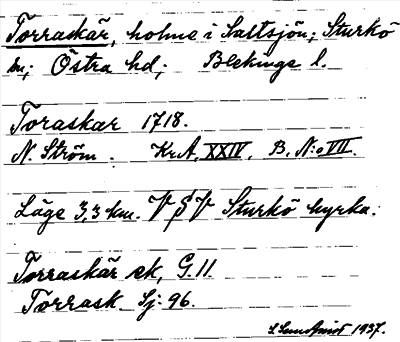 Torraskär, holme i Saltsjön; Sturkö
sn; Östra hd; Blekinge l.
Toraskar 1718.
N. Ström. Kr.A, XXIV, B, N:o VII.
Läge 3,3 km. V S V Sturkö kyrka.
Torraskär ek, G. 11
Torrask. Sj: 96.
1937.